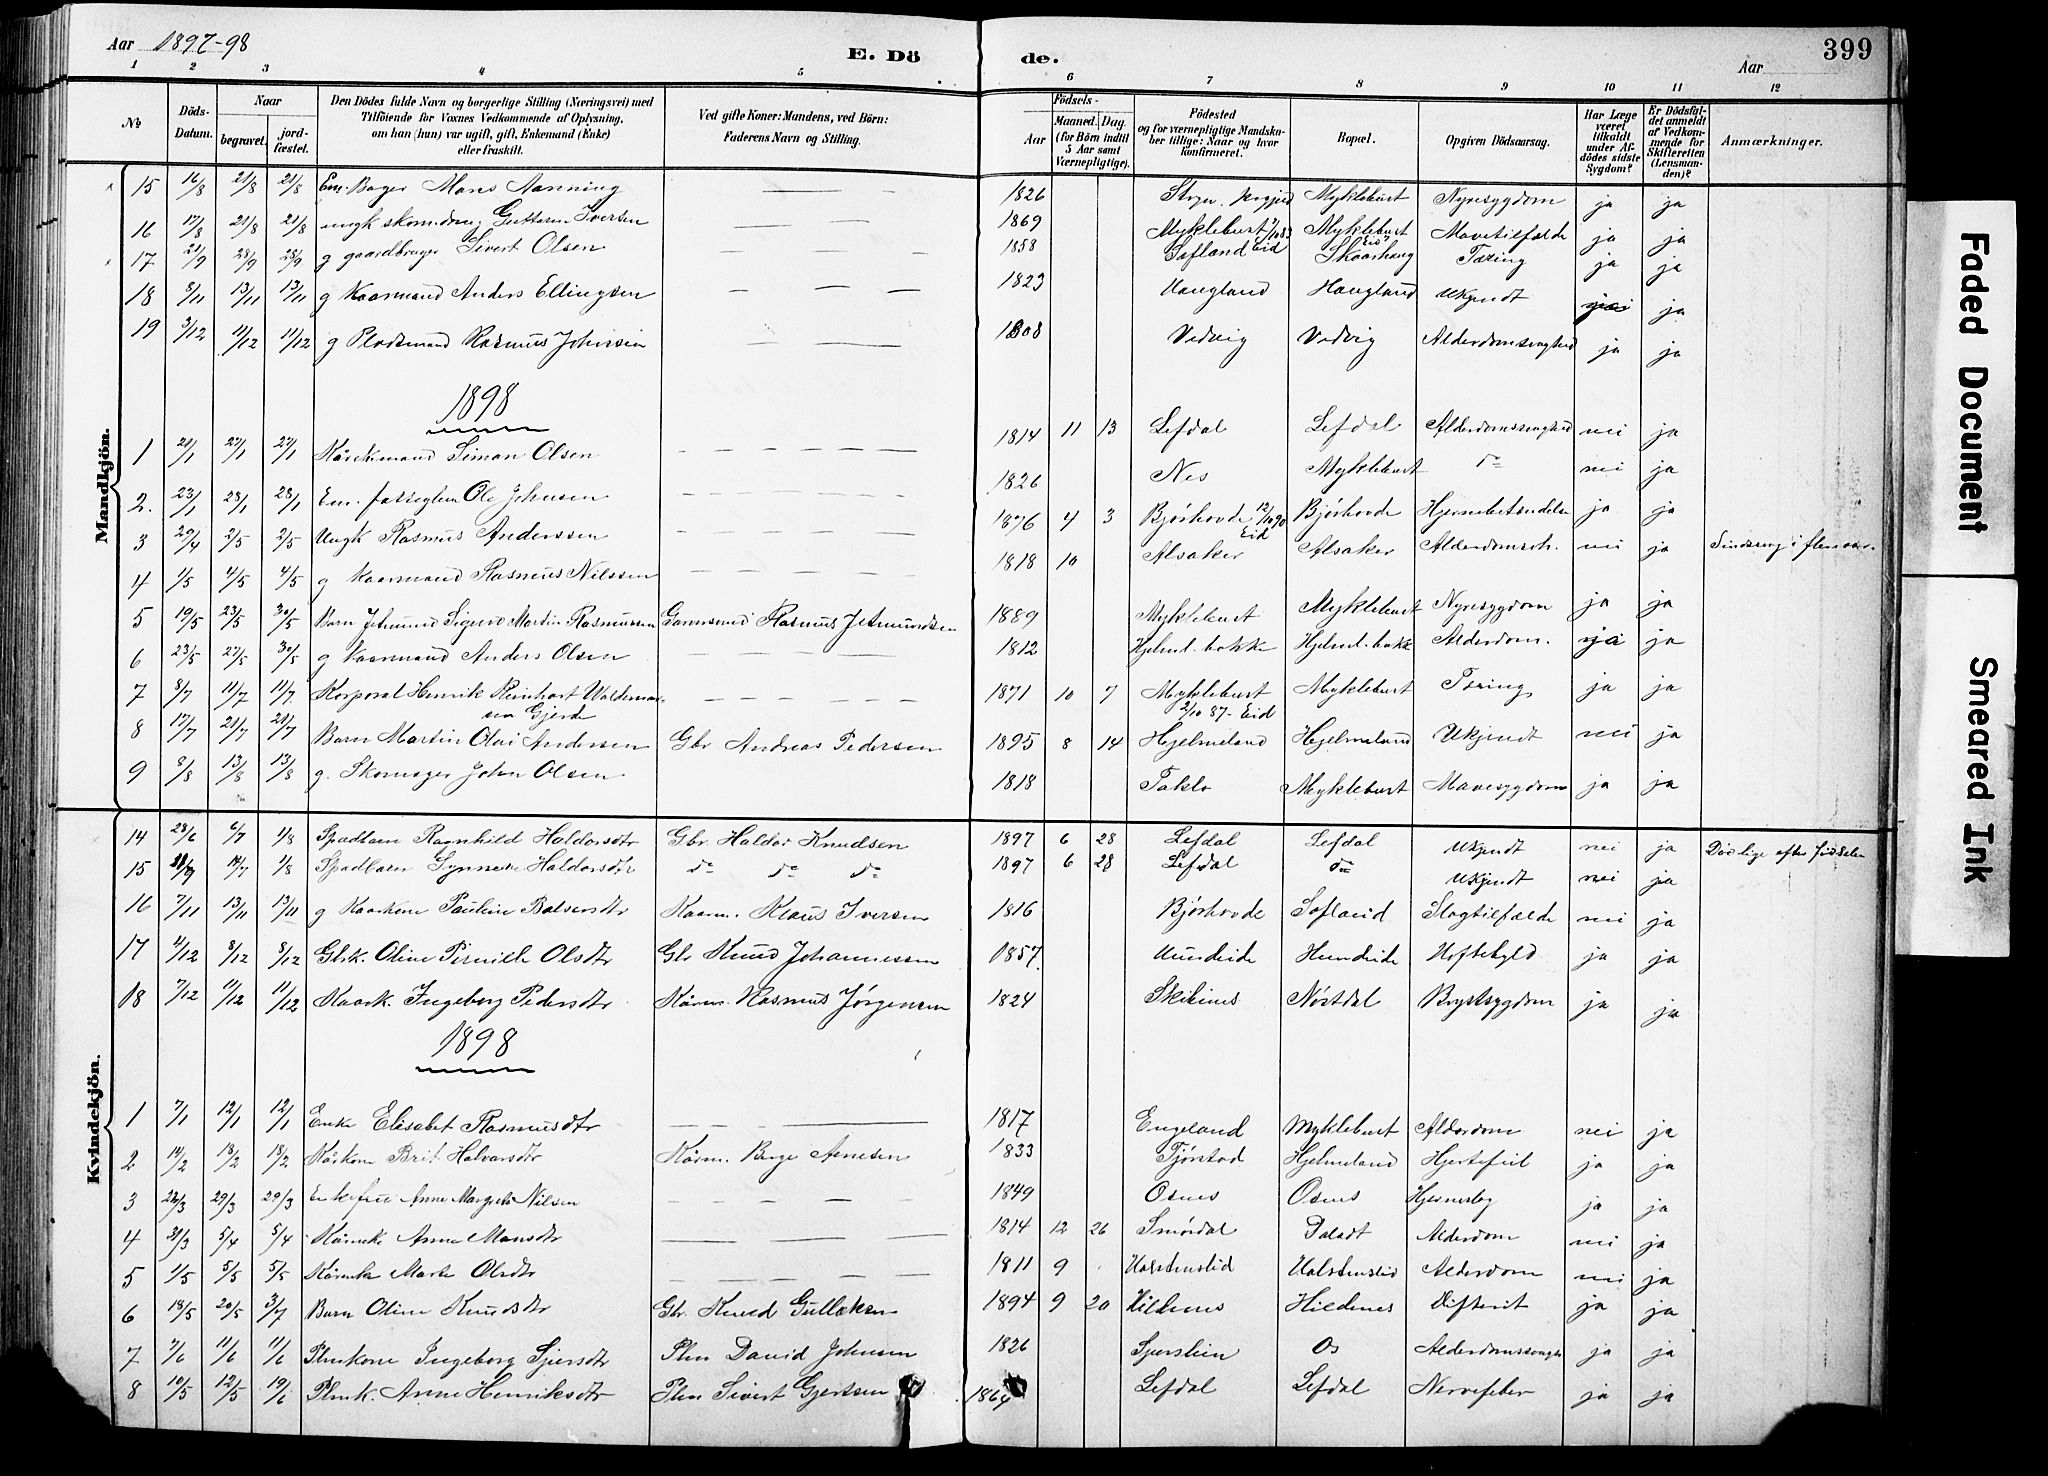 Aar 1897-98
E. Dö
de.
Aar
399
1 2 3 4 5 6 7 8 9 10 11 12
No
Döds-Datum.
Naar
begravet.
jord-fæstet.
Den Dödes fulde Navn og borgerlige Stilling (Næringsvei) med
Tilföiende for Voxnes Vedkommende af Oplysning,
om han (hun) var ugift, gift, Enkemand (Enke)
eller fraskilt.
Ved gifte Koner: Mandens, ved Börn:
Faderens Navn og Stilling.
Födsels-
Aar
Maaned. Dag
(for Börn indtil
5 Aar samt
Værnepligtige).
Födested
og for værnepligtige Mandska-
ber tillige: Naar og hvor
konfirmeret.
Bopæl.
Opgiven Dödsaarsag.
Har Læge
været
tilkaldt
under Af-
dödes sidste
Sygdom?
Er Dödsfal-
det anmeldt
af Vedkom-
mende for
Skifteretten
(Lensman-
den)?
Anmærkninger.
Mandkjön.
15 16/8 21/8 21/8 Em. Bager Mons Aanning — — — 1826 Myklebust Nyresygdom ja ja
16 17/8 21/8 21/8 ungk skom.dreng Guttorm Iversen — — — 1869 Myklebust Myklebust Mavetilfælde ja ja
17 21/9 28/9 28/9 g gaardbruger Sivert Olsen — — — 1858 Sofland Eid Skaarhaug Tæring ja ja
18 8/11 13/11 13/11 g Kaarmand Anders Ellingsen — — — 1823 Haugland Haugland Ukjendt nei ja
19 3/12 11/12 11/12 g Pladsmand Rasmus Johnsen — — — 1808 Vedvig Vedvig Alderdomssvaghed ja ja
1898
1 21/1 27/1 27/1 Kårekmand Simon Olsen — — — 1814 11 13 Lefdal Lefdal Alderdomssvaghed nei ja
2. 23/1 28/1 28/1 Em. Ole Johnsen — — — 1826 Nes Myklebust do nei ja
3 29/4 2/5 2/5 Ungk Rasmus Anderssen — — — 1876 4 3 Bjørhovde 12/10 90 Eid Bjørhovde Hjernebetændelse ja ja
4 1/5 4/5 4/5 g Kaarmand Rasmus Nilssen — — — 1818 10 Alsaker Alsaker Alderdomsch. nei ja Sindssvag i flere aar.
5 19/5 23/5 30/5 Barn Jetmund Sigurd Martin Rasmussen Garversvend Rasmus Jetmundsen 1889 Myklebust Myklebust Nyresygdom ja ja
6 23/5 27/5 30/5 g Kaarmand Anders Olsen — — — 1812 Hjelml. bakke Hjelml. bakke Alderdom. ja ja
7 8/7 11/7 11/7. Korporal Henrik Reinhart Waldemar-
sen Gjerde — — — 1871 10 7 Myklebust 2/10 87 - Eid Myklebust Tæring ja ja
8 17/7 21/7 21/7 Barn Martin Olai Andersen Gbr Andreas Pedersen 1895 8 14 Hjelmeland Hjelmeland Ukjendt nei ja
9 8/8 13/8 13/8 g. Skomager John Olsen 1818 Taklo Myklebust Mavesygdom ja ja
Kvindekjön.
14 28/6 6/7 1/8 Spædbarn Ragnhild Haldorsdtr Gbr. Haldor Knudsen 1897 6 28 Lefdal Lefdal Ukjendt nei ja Død lige efter fødselen
15 14/7 1/8 Spædbarn Synneve Haldorsdtr do do do 1897 6 28 Lefdal do Ukjendt nei ja
16 7/11 13/11 13/11 g Kaarkone Pauline Balsersdtr Kaarm. Klaus Iversen 1816 Bjørhovde Sofland Slagtilfælde nei ja
17 4/12 8/12 8/12 Gbk. Oline Pernille Olsdtr Gbr Knud Johannessen 1857. Hundeide Hundeide Hoftebyld ja ja
18 7/12 11/12 11/12 Kaark. Ingeborg Pedersdtr Kårm. Rasmus Jørgensen 1824 Skibenes Nørstdal Brystsygdom ja ja
1898
1 7/1 12/1 12/1 Enke Elisabet Rasmusdtr — — — 1817 Engeland Myklebust Alderdom nei ja
2 14/2 18/2 18/2 Kårkone Brit Halvorsdtr Kårm. Børge Arnesen 1833 Tjørstad Hjelmeland Hjertefeil ja ja
3 22/3 29/3 29/3 Enkefru Anne Margrete Nilsen — — — 1849 Osnes Osnes ja ja
4 31/3 5/4 5/4 Kårenke Anne Monsdtr — — — 1814 12 26 Smørdal Alderdom nei ja
5 1/5 5/5 5/5 Kårenke Marte Olsdtr — — — 1811 9 Holstenslid Holstenslid Alderdom nei ja
6 18/5 20/5 3/7 Barn Oline Knudsdtr Gbr. Knud Gullaksen 1894 9 20 Hildenes Hildenes Difterit ja ja
7 7/6 11/6 11/6 Plmkone Ingeborg Sjursdtr Plm David Johnsen 1826 Os Alderdomssvaghed ja ja
8 10/5 12/5 19/6 Plmk. Anne Henriksdtr Plm Sivert Gjertsen 1864 Lefdal Lefdal Nervefeber ja ja
Faded Document
Smeared Ink